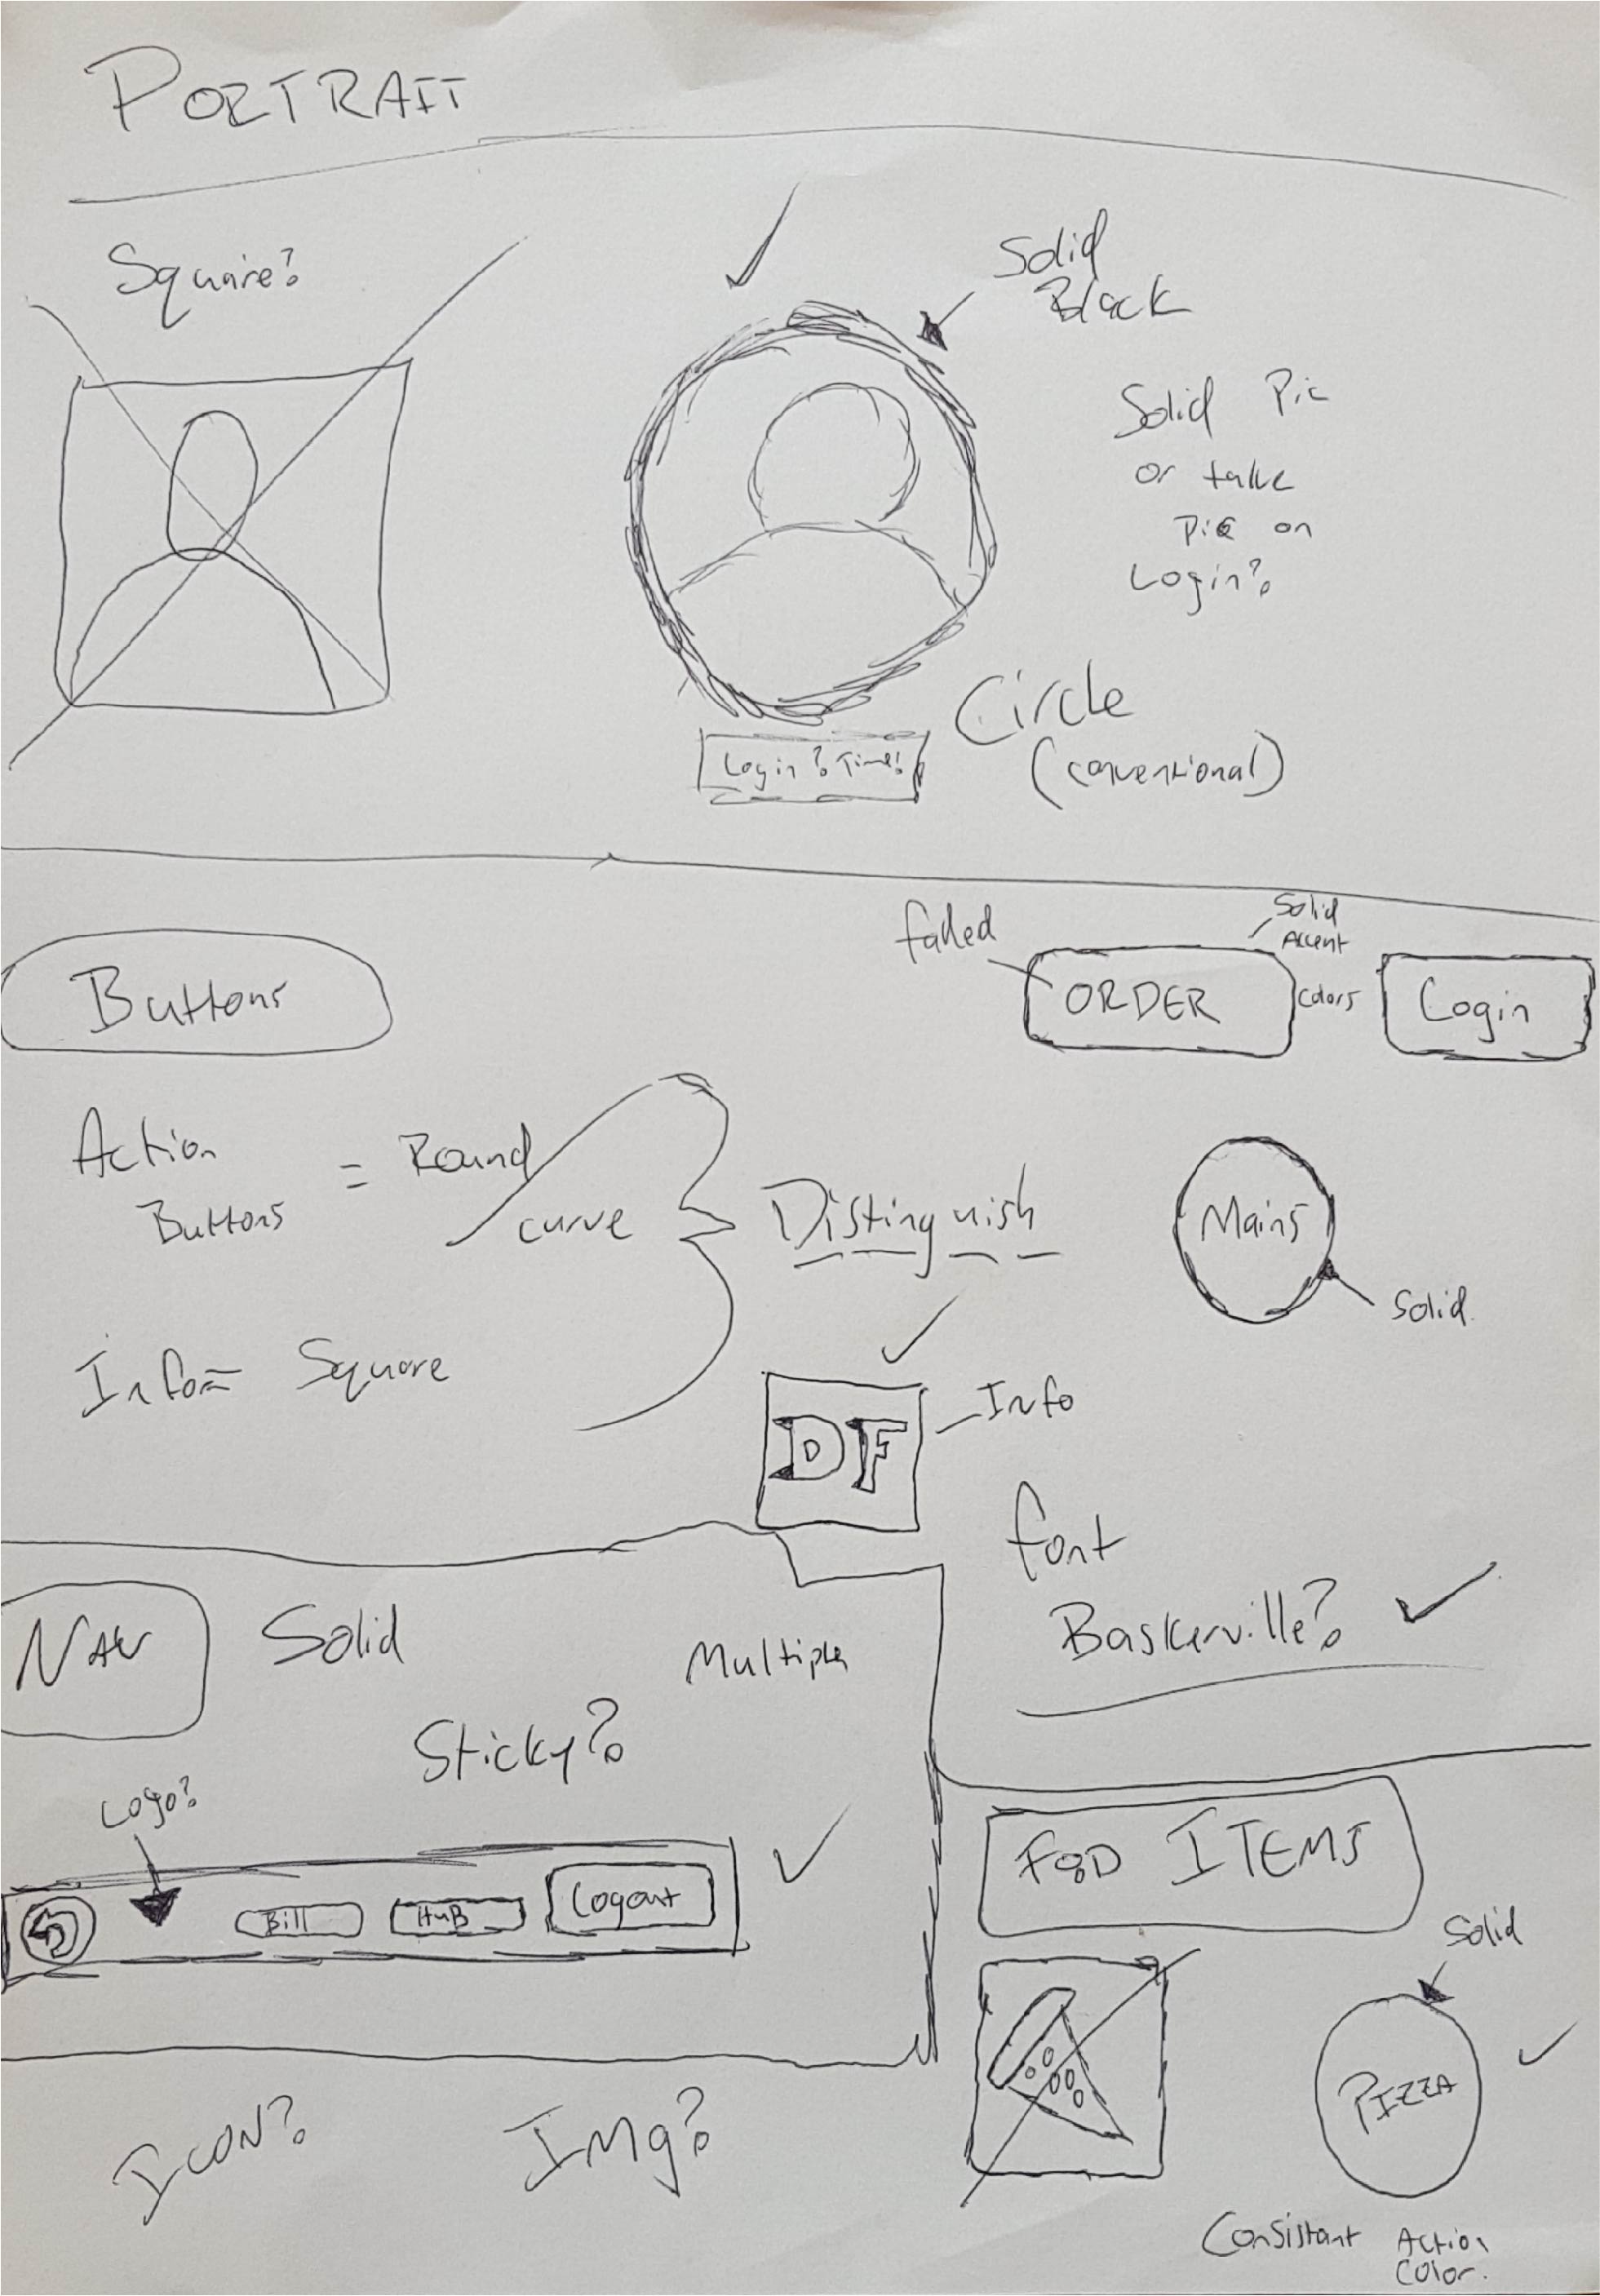 PORTRAIT
Square?
Solid
Black
Solid Pic
or take
pic on
Login?
Circle
(conventional)
Login? Time?
Buttons
faded
Solid
Accent
colors
ORDER
Login
Action
Buttons
= Round
curve
Distinguish
Mains
Solid.
Info= Square
DF
Info
font
Baskerville?
Nav
Solid
Multiple
Sticky?
Logo?
Bill
HuB
Logout
FOOD ITEMS
Solid
PIZZA
ICON?
IMg?
Consistant Action
Color.